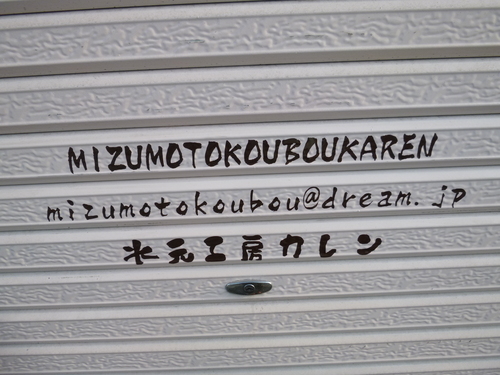 MIZUMOTOKOUBOUKAREN
mizumotokoubou@dream.jp
水元工房カレン